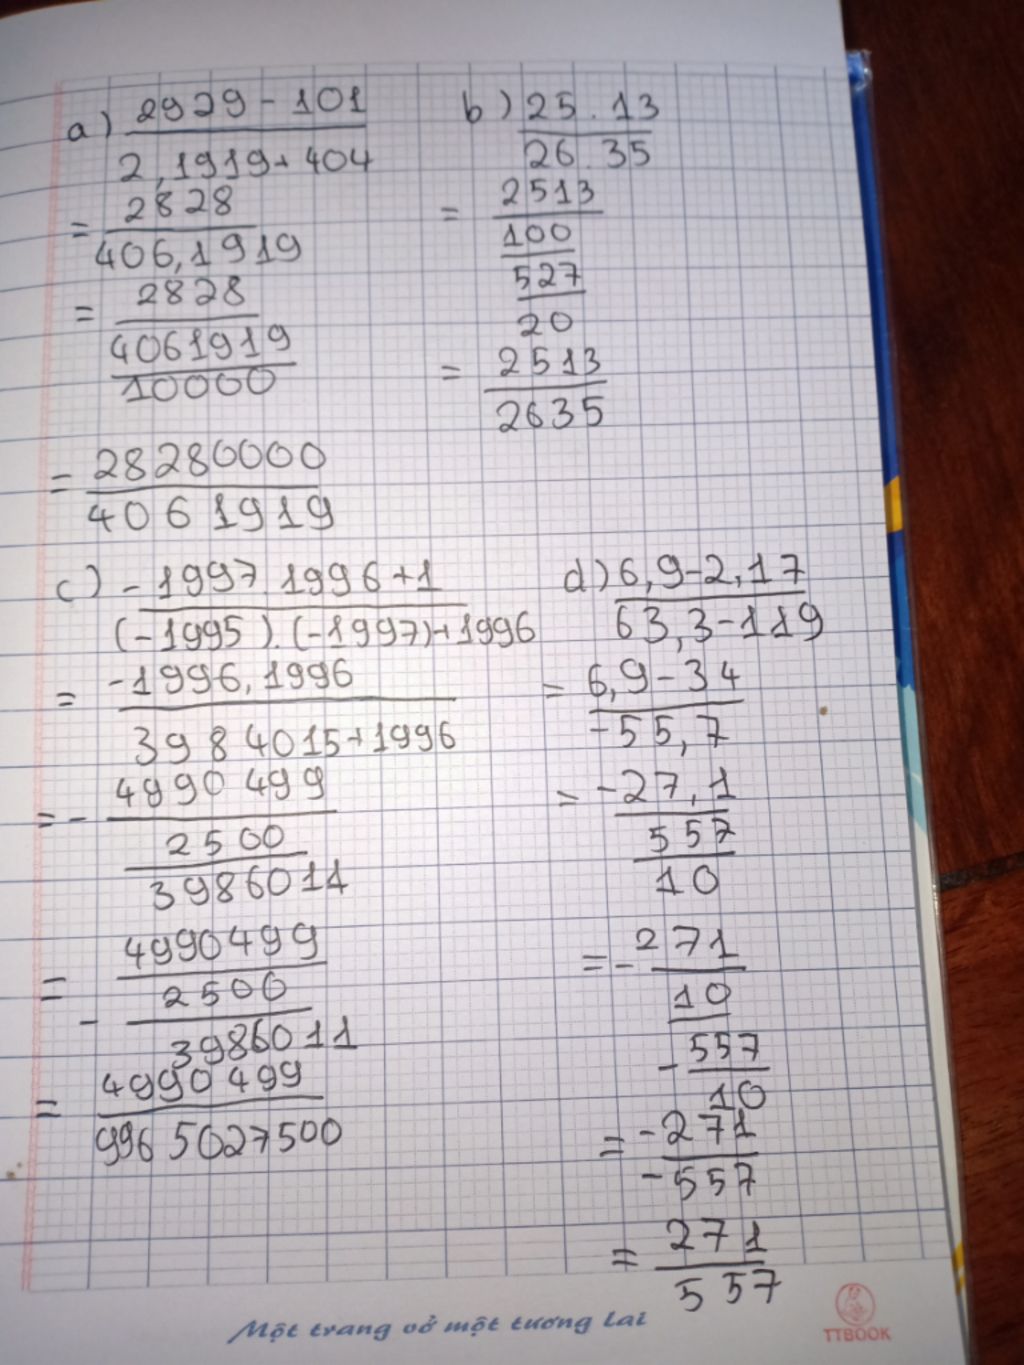 a) 2929 - 101
2,1919+404
= 2828
406,1919
= 2828
4061919
10000
= 28280000
4061919
b) 25.13
26.35
= 2513
100
527
20
= 2513
2635
c) -1997.1996+1
(-1995).(-1997)+1996
= -1996,1996
3984015+1996
= - 4990499
2500
3986011
= 4990499
2500
- 3986011
= 4990499
9965027500
d) 6,9-2,17
63,3-119
= 6,9-34
-55,7
= -27,1
557
10
= - 271
10
- 557
10
= -271
-557
= 271
557
Một trang vở một tương lai
TTBOOK